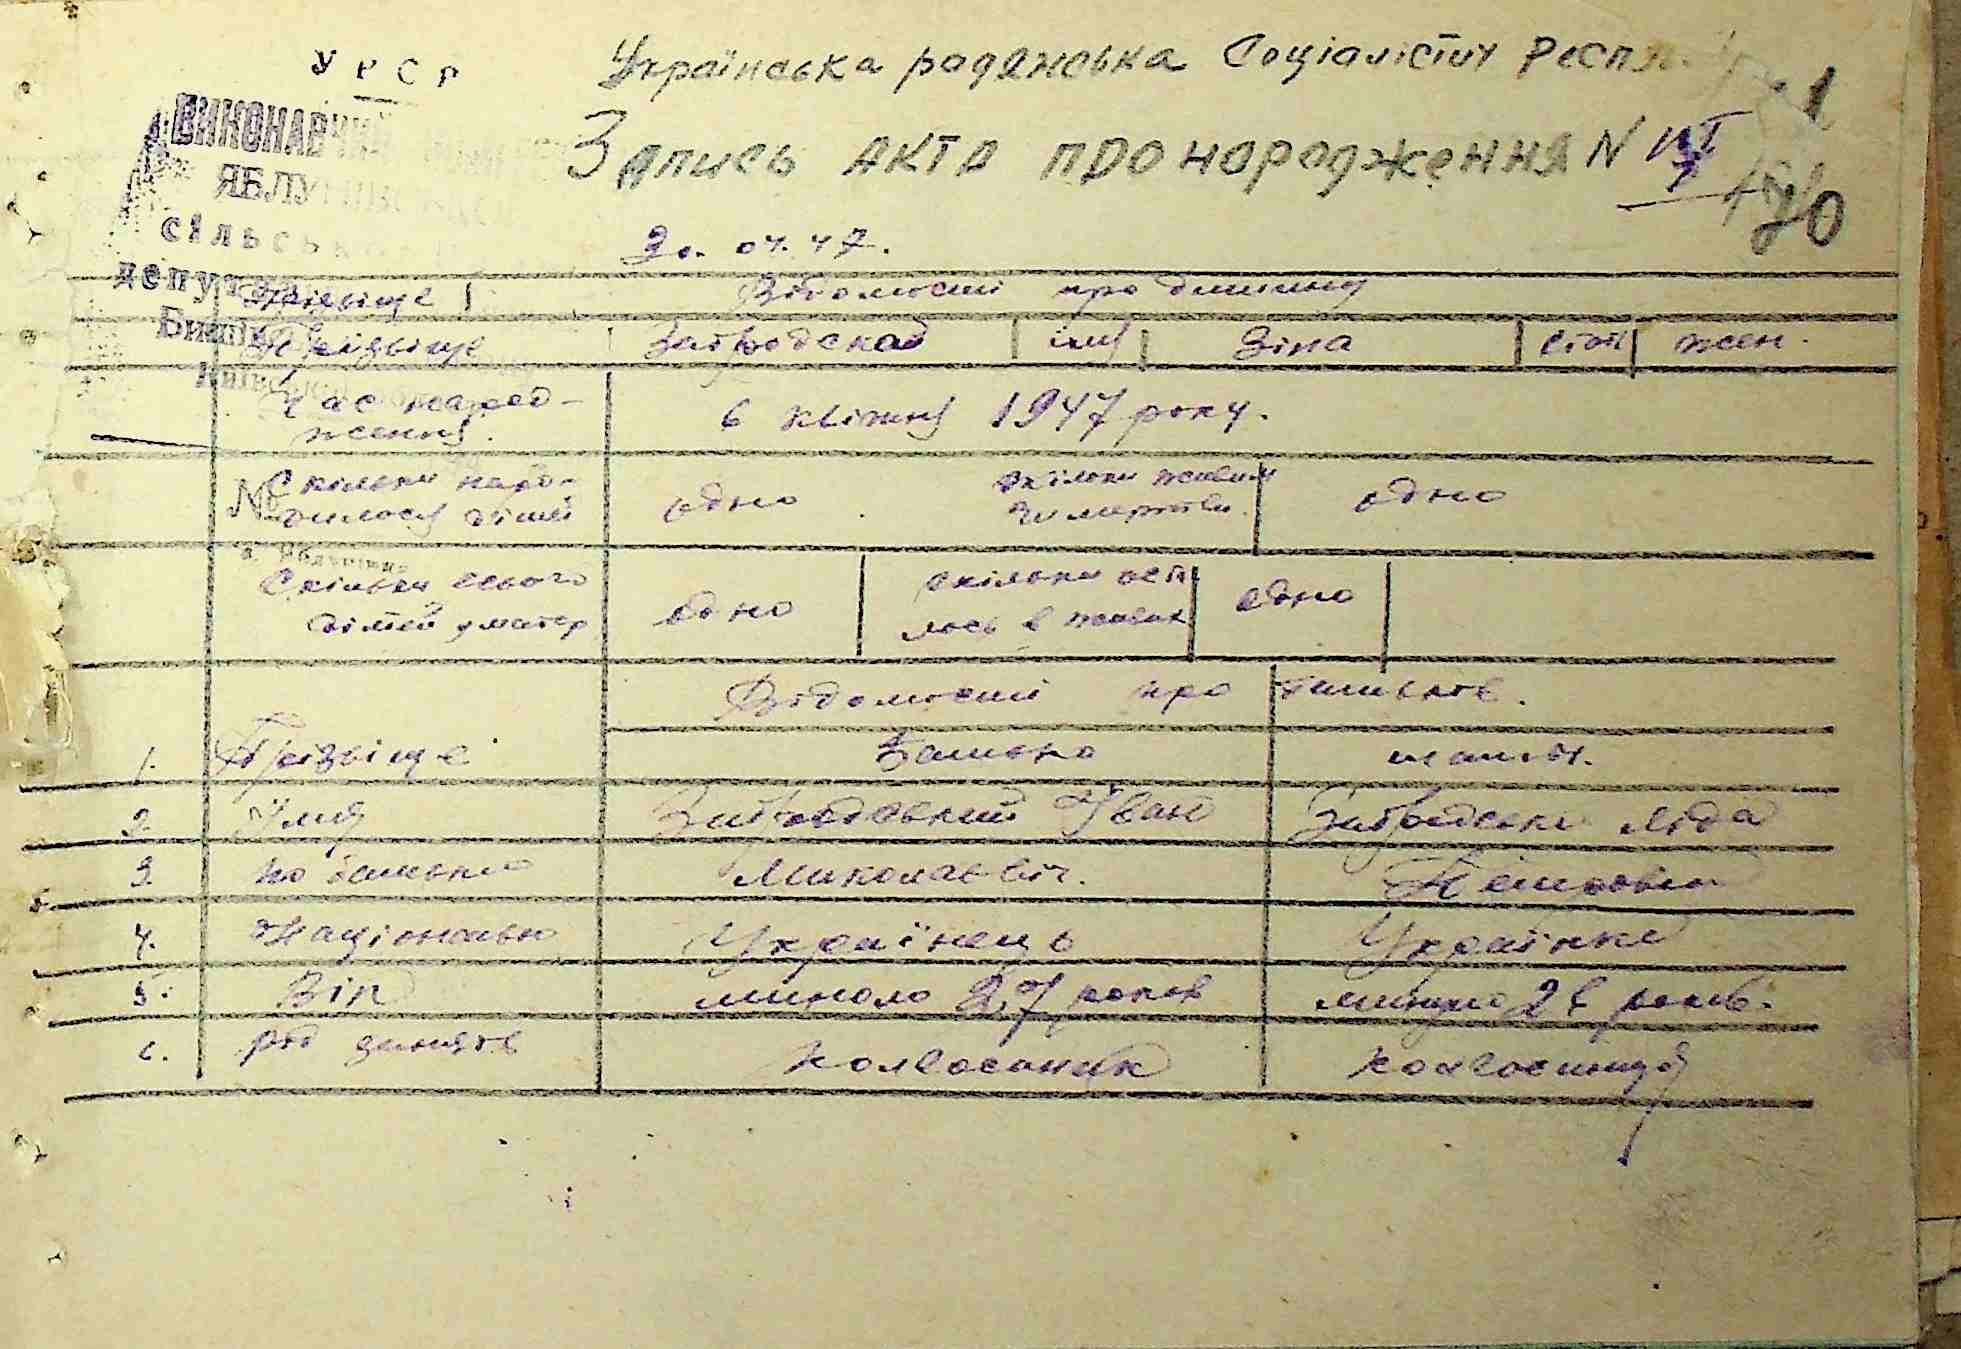 УРСР Українська радянська Соціалістич Респ
ВИКОНАВЧИЙ
Запись акта про народження N
ЯБЛУ
сільськ
20. 04. 47.
депут
Прізвище Відомості про дитину
Прізвище Завродская імя Зіна стать жен.
Час народ-
ження. 6 квітня 1947 року.
Скільки наро-
дилося дітей одно скільки живим
чи мертвим. одно
№
Скільки всього
дітей у матер одно скільки оста
лось в живих одно
Відомости про батьків.
1. Прізвище батько мати.
2. Імя Завродський Іван Завродська Ліда
3. по батькові Миколаєвіч.
4. Національн Українець Українка
5. Вік миноло 27 років минуло років.
6. рід занять колгоспник колгоспниця